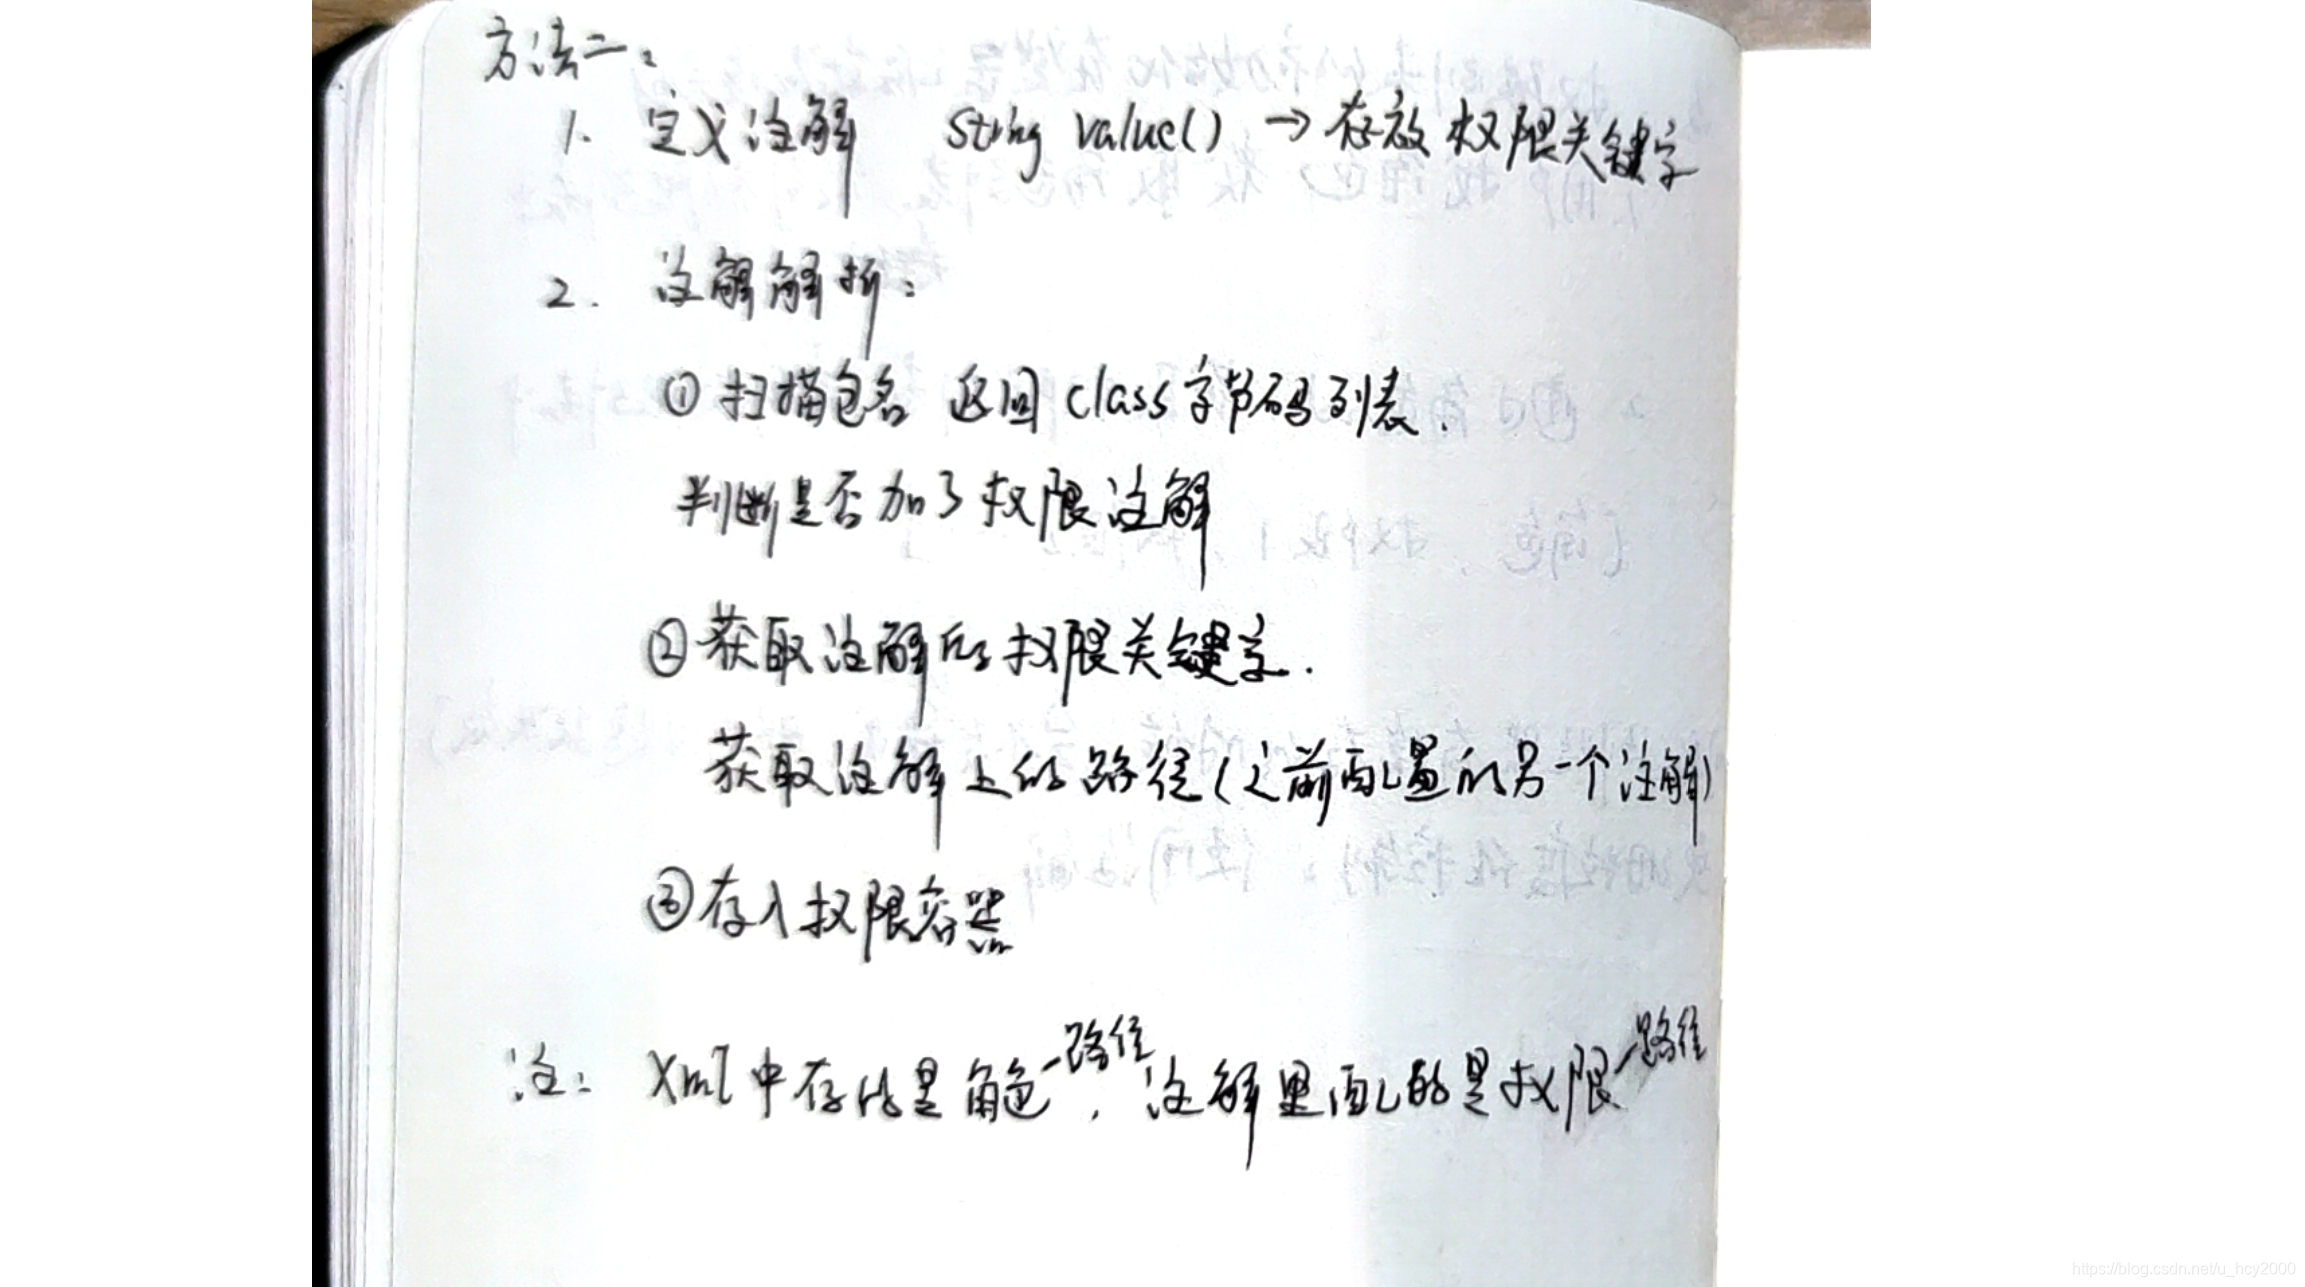 方法二：
1. 定义注解 String value() →存放权限关键字
2. 注解解析：
①扫描包名 返回class字节码列表.
判断是否加了权限注解
②获取注解的权限关键字.
获取注解上的路径(之前配置的另一个注解)
③存入权限容器
注：Xml中存的是角色-路径，注解里配的是权限-路径
https://blog.csdn.net/u_hcy2000